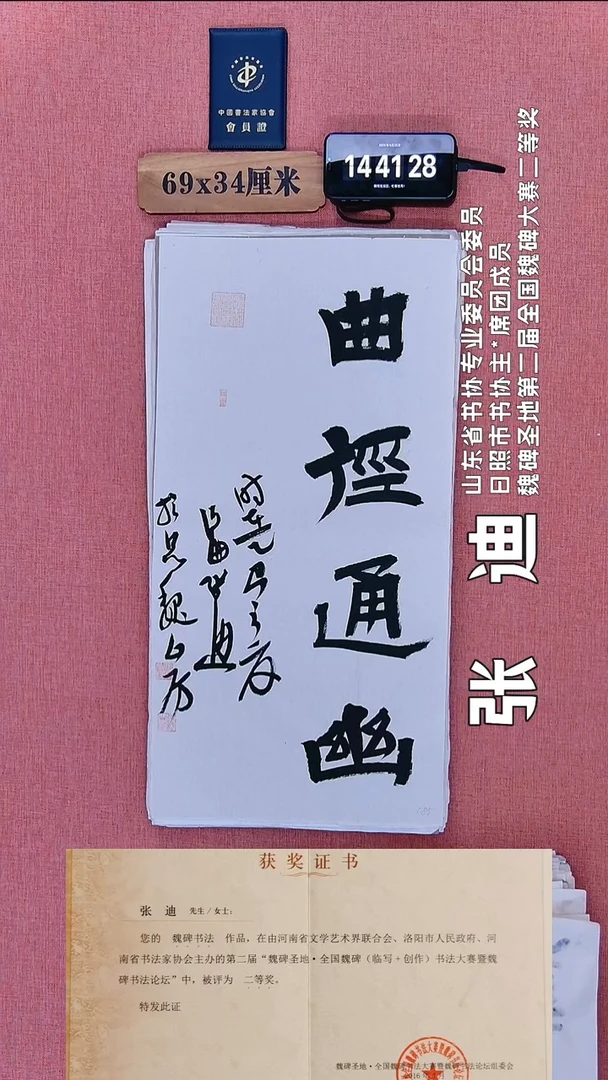 中國書法家協會
會員證
69x34厘米
14 41 28
曲徑通幽
山东省书协专业委员会委员
日照市书协主*席团成员
魏碑圣地第二届全国魏碑大赛二等奖
张 迪
获奖证书
张 迪 先生/女士:
您的 魏碑书法 作品,在由河南省文学艺术界联合会、洛阳市人民政府、河
南省书法家协会主办的第二届“魏碑圣地·全国魏碑(临写+创作)书法大赛暨魏
碑书法论坛”中,被评为 二等奖。
特发此证
魏碑圣地·全国魏碑书法大赛暨魏碑书法论坛组委会